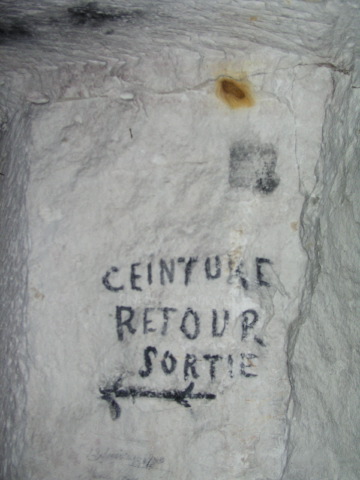 CEINTURE
RETOUR
SORTIE